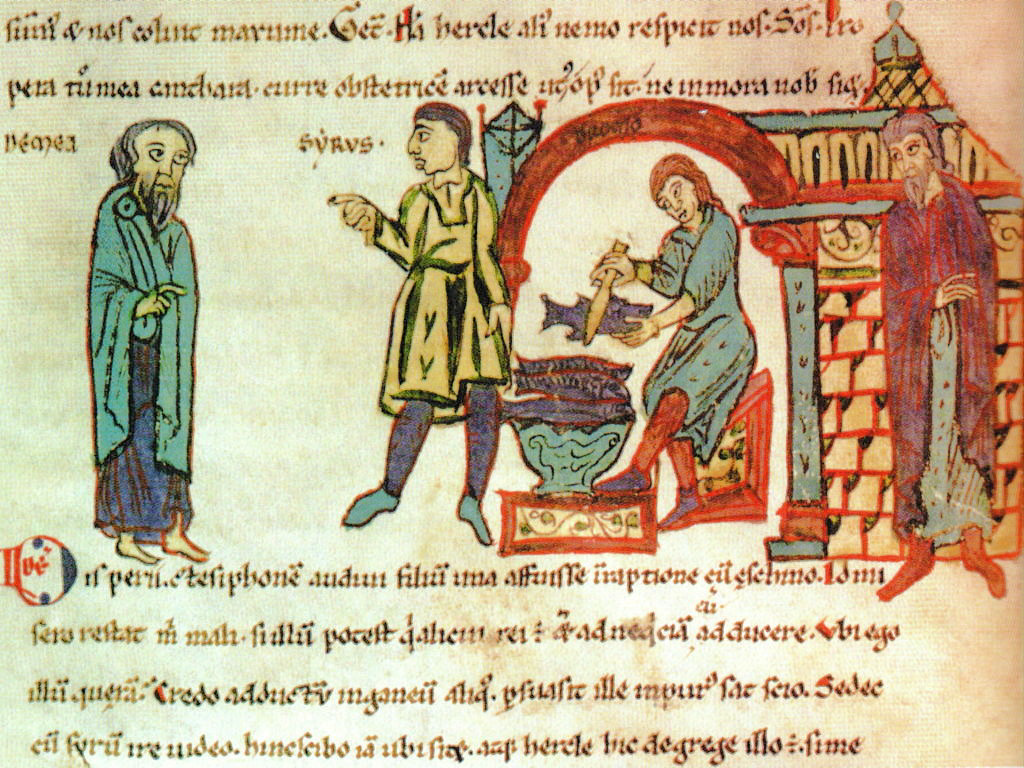 sum̄ & nos colunt maxume. Get̄. Ha hercle ali' nemo respicit nos. Sos. Pro
pera tu mea canthara. curre obstetricē arcesse ut op' sit. ne in mora nob siet.
DEMEA SYRUS.
DROMO
DE
Disperii. ctesiphonē audiui filiū una affuisse in raptione cū eschino. Id mi
eū
sero restat m̄ mali. si illū potest q̄ alicui rei ÷ & ad neq̄ciā adducere. Vbi ego
illū querā. Credo adductū in ganeū aliq̄. psuasit ille impur' sat scio. Sed ec
cū syrū ire uideo. hinc scibo iā ubi siet. atq; hercle hic de grege illo ÷. si me